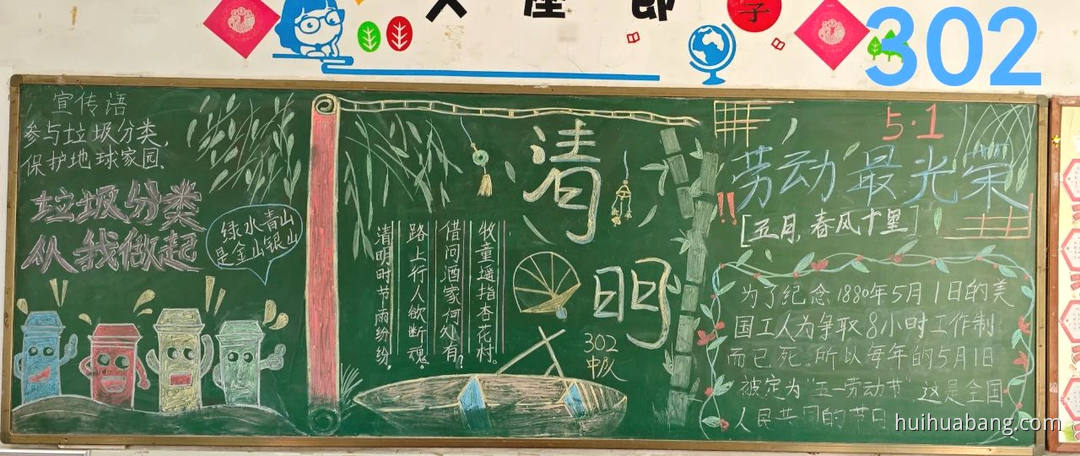 302
宣传语
参与垃圾分类,
保护地球家园.
垃圾分类
从我做起
绿水青山
是金山银山
清明
清明时节雨纷纷。
路上行人欲断魂。
借问酒家何处有?
牧童遥指杏花村。
302
中队
5·1
劳动最光荣
[五月,春风十里]
为了纪念1880年5月1日的美
国工人为争取8小时工作制
而已死.所以每年的5月1日
被定为"五一劳动节"这是全国
人民共同的节日
huihuabang.com